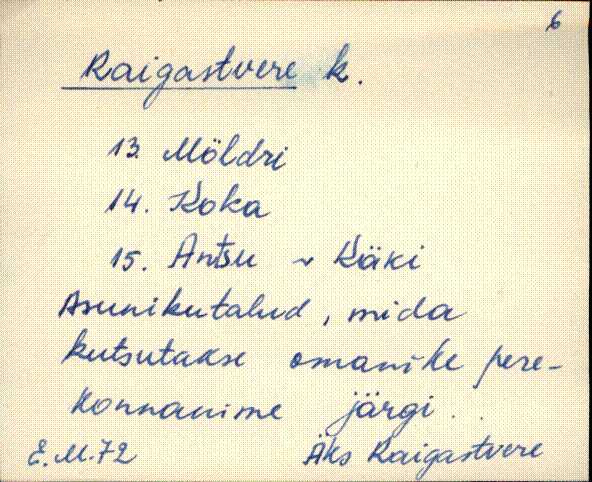 6
Raigastvere k.
13. Möldri
14. Koka
15. Antsu ~ Käki
Asunikutalud, mida
kutsutakse omanike pere-
konnanime järgi..
E.M.72 Äks Raigastvere